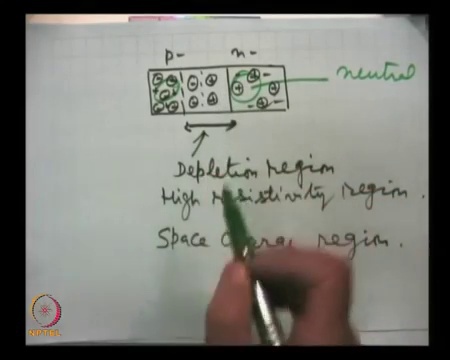 p- n-
neutral
Depletion region
High resistivity region.
Space charge region.
NPTEL